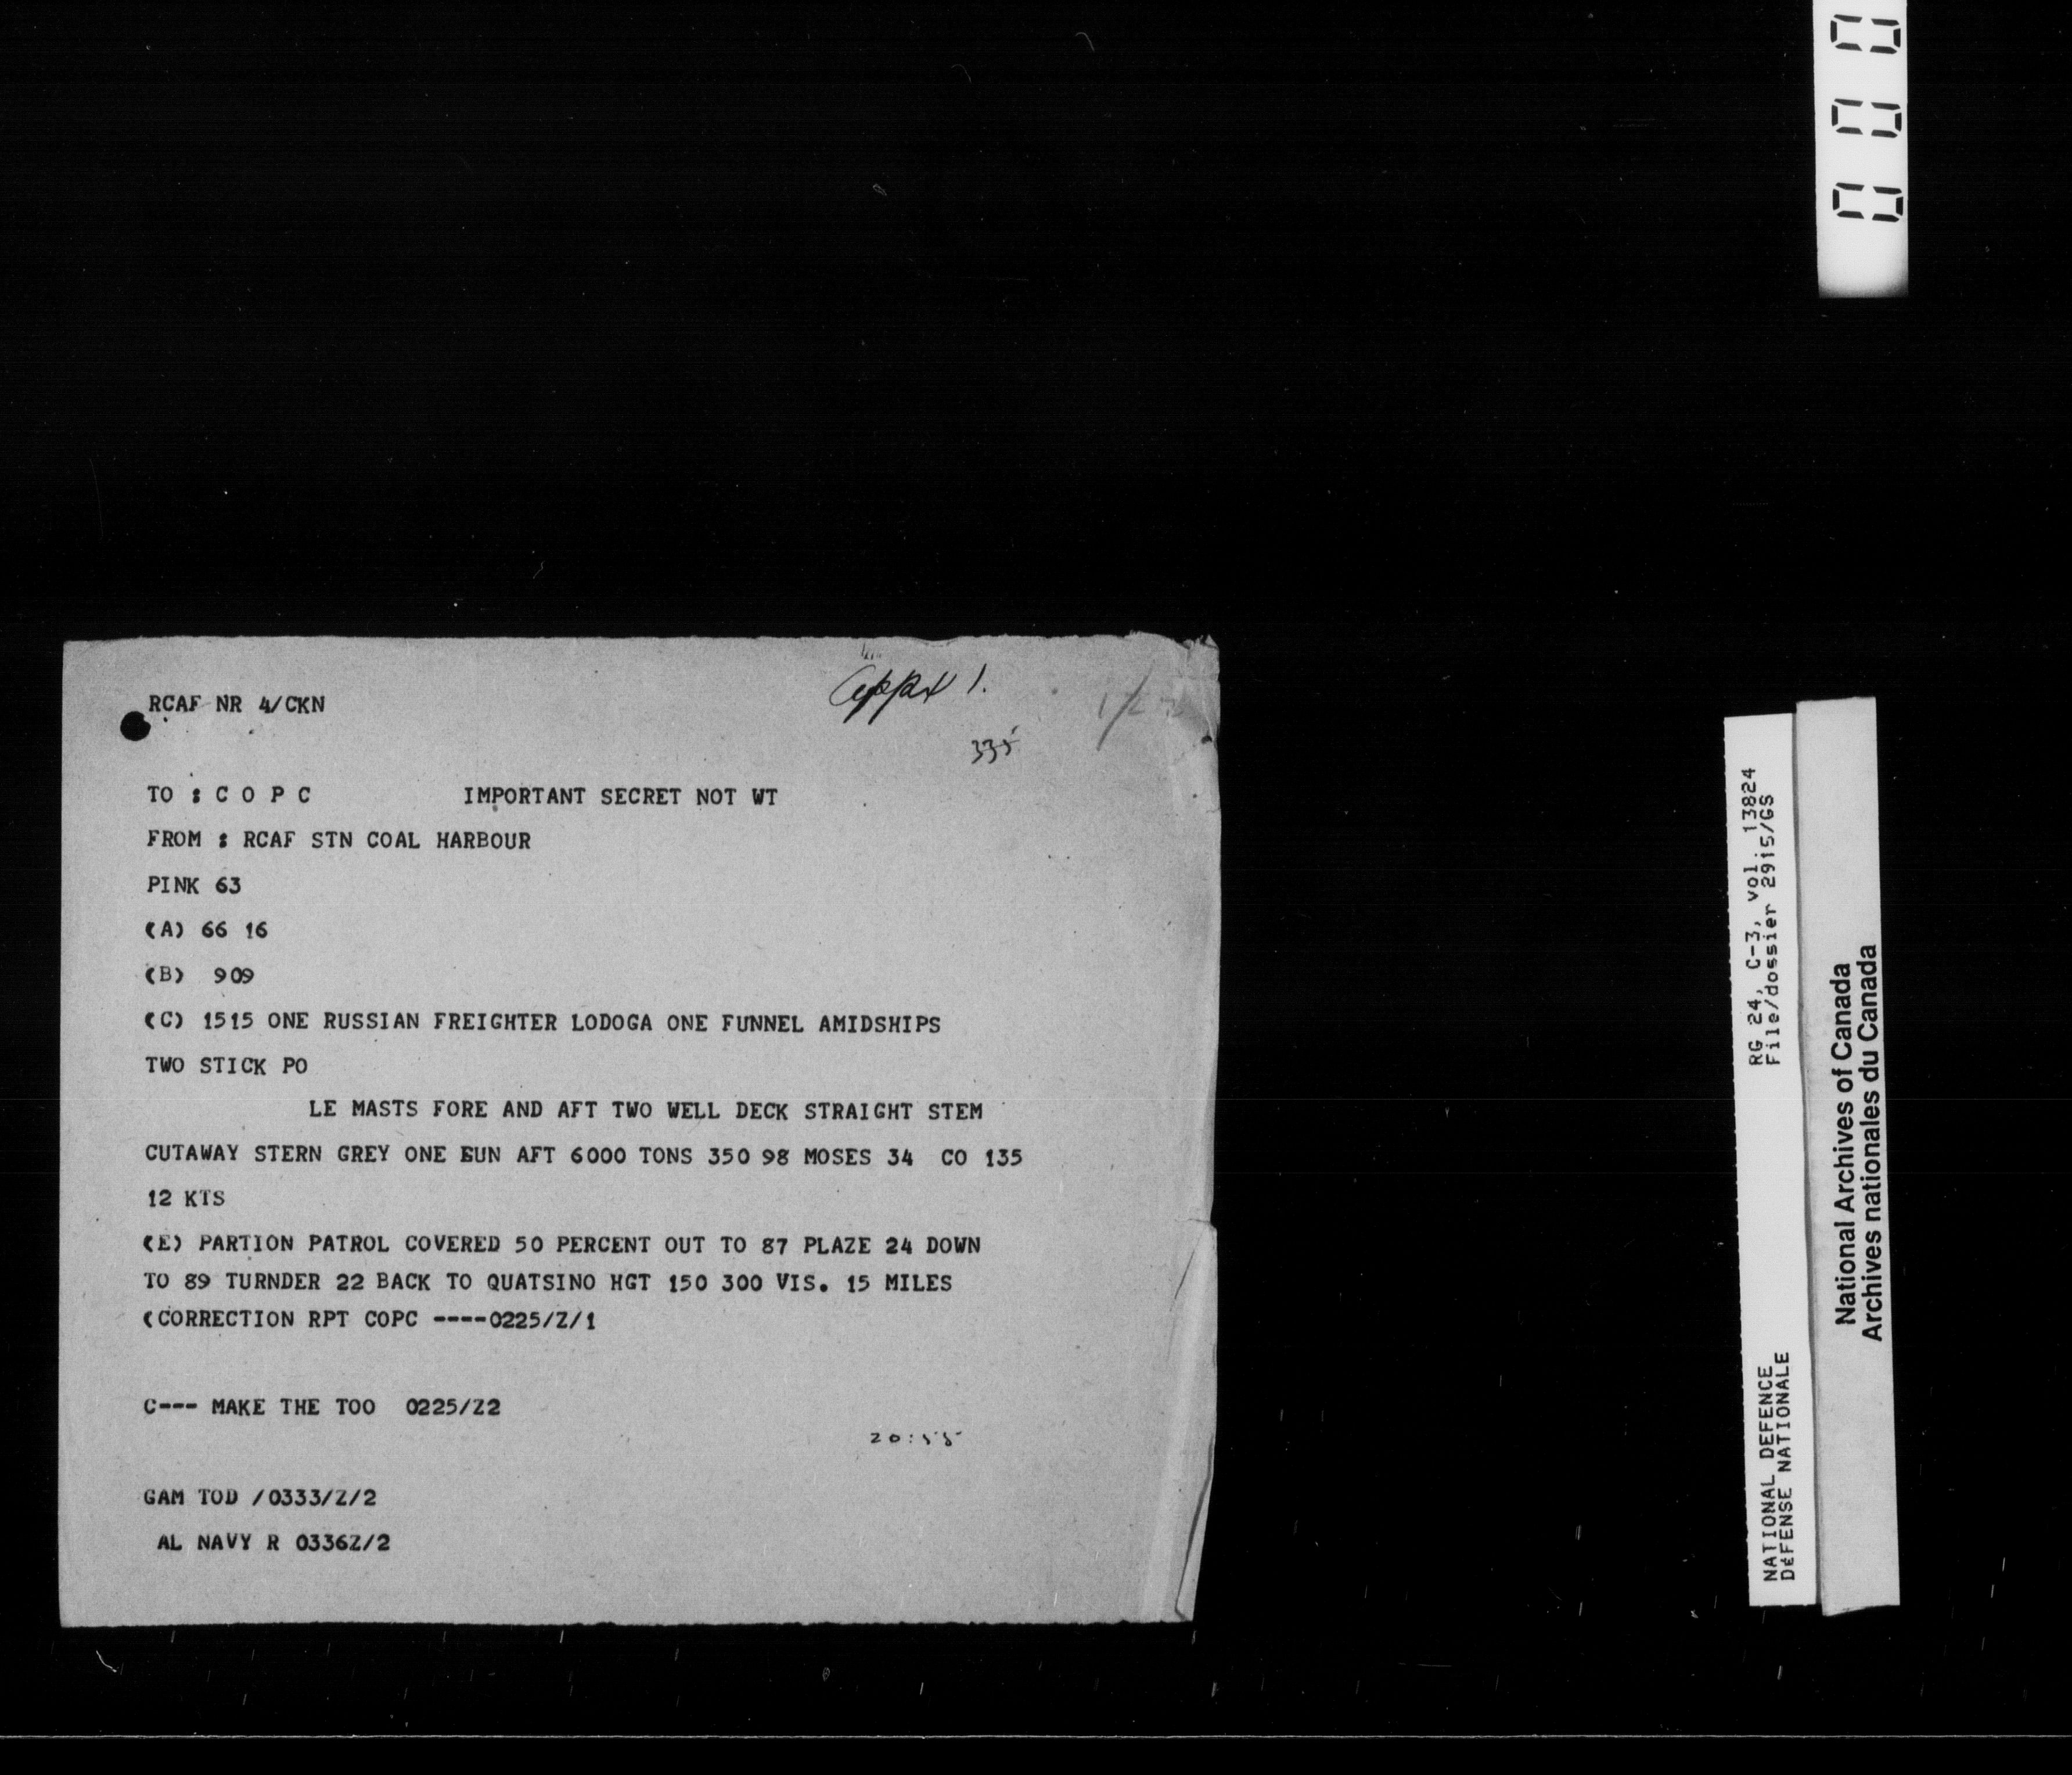 Appx 1.
RCAF NR 4/CKN
335
TO : C O P C IMPORTANT SECRET NOT WT
FROM : RCAF STN COAL HARBOUR
PINK 63
(A) 66 16
(B) 909
(C) 1515 ONE RUSSIAN FREIGHTER LODOGA ONE FUNNEL AMIDSHIPS
TWO STICK PO
LE MASTS FORE AND AFT TWO WELL DECK STRAIGHT STEM
CUTAWAY STERN GREY ONE GUN AFT 6000 TONS 350 98 MOSES 34 CO 135
12 KTS
(E) PARTION PATROL COVERED 50 PERCENT OUT TO 87 PLAZE 24 DOWN
TO 89 TURNDER 22 BACK TO QUATSINO HGT 150 300 VIS. 15 MILES
(CORRECTION RPT COPC ----0225/Z/1
C--- MAKE THE TOO 0225/Z2
20:55
GAM TOD /0333/Z/2
AL NAVY R 0336Z/2
000
RG 24, C-3, vol. 13824
File/dossier 2915/GS
NATIONAL DEFENCE
DéFENSE NATIONALE
National Archives of Canada
Archives nationales du Canada